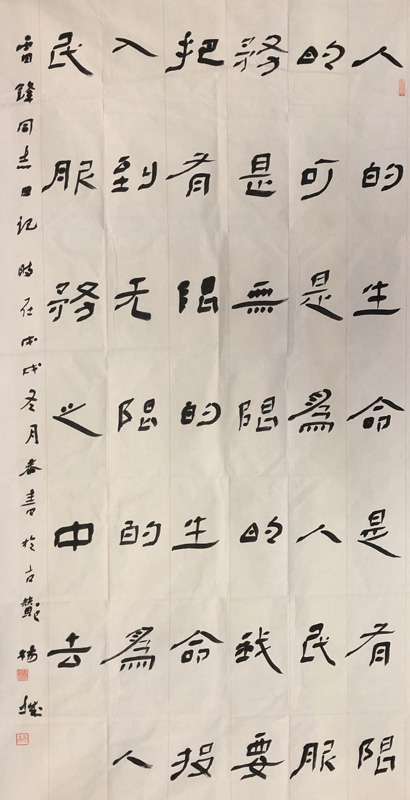 人的生命是有限
的可是為人民服
務是無限的我要
把有限的生命投
入到无限的為人
民服務之中去
雷鋒同志日記時在戊戌冬月書於古酇楊